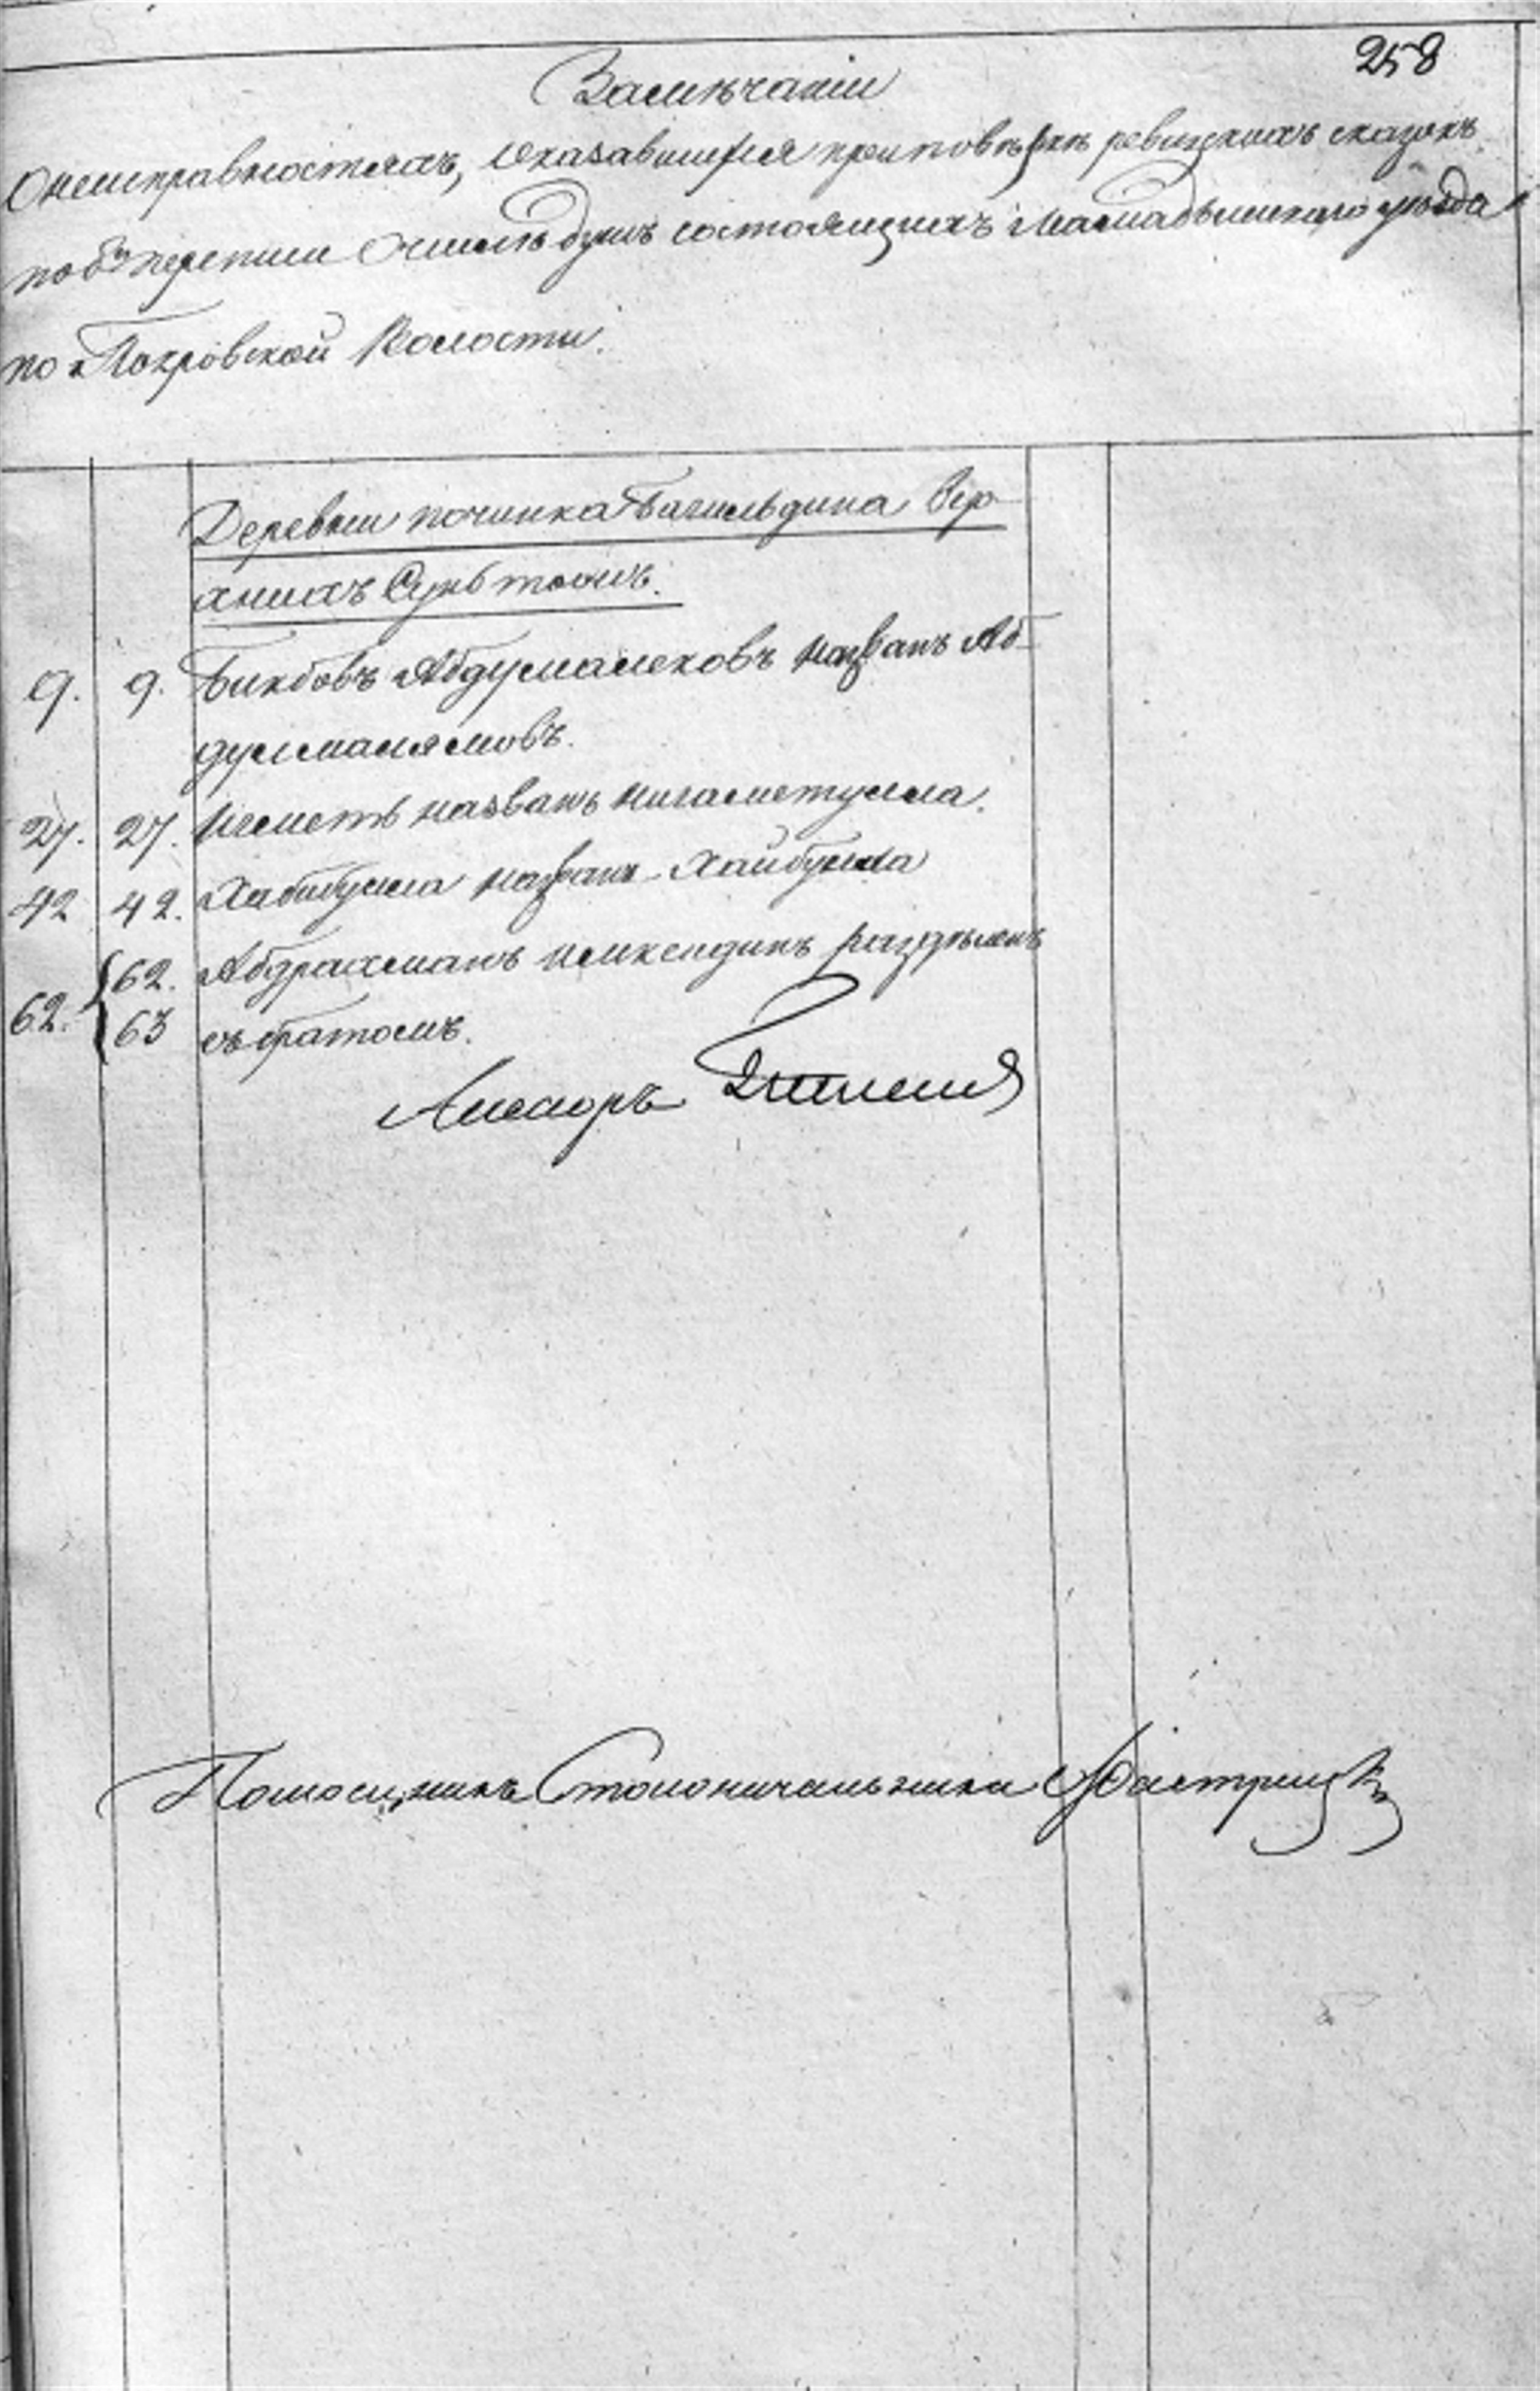 258
Замѣчаніи
О неисправностяхъ, оказавшихся при повѣркѣ ревизскихъ сказокъ
по 8й переписи О числѣ душъ состоящихъ Мамадышскаго уѣзда
по Покровской Волости.
Деревни починка Бигильдина Вер-
хнихъ Сунь тожъ.
9. 9. Бикбовъ Абдумалековъ названъ Аб-
дулмалямовъ.
27. 27. Игметь названъ Нигаметулла.
42 42. Хабибулла названъ Хайбулла
62. Абдрахманъ раздѣленъ
62. 63 съ братомъ.
Помощникъ Столоначальника